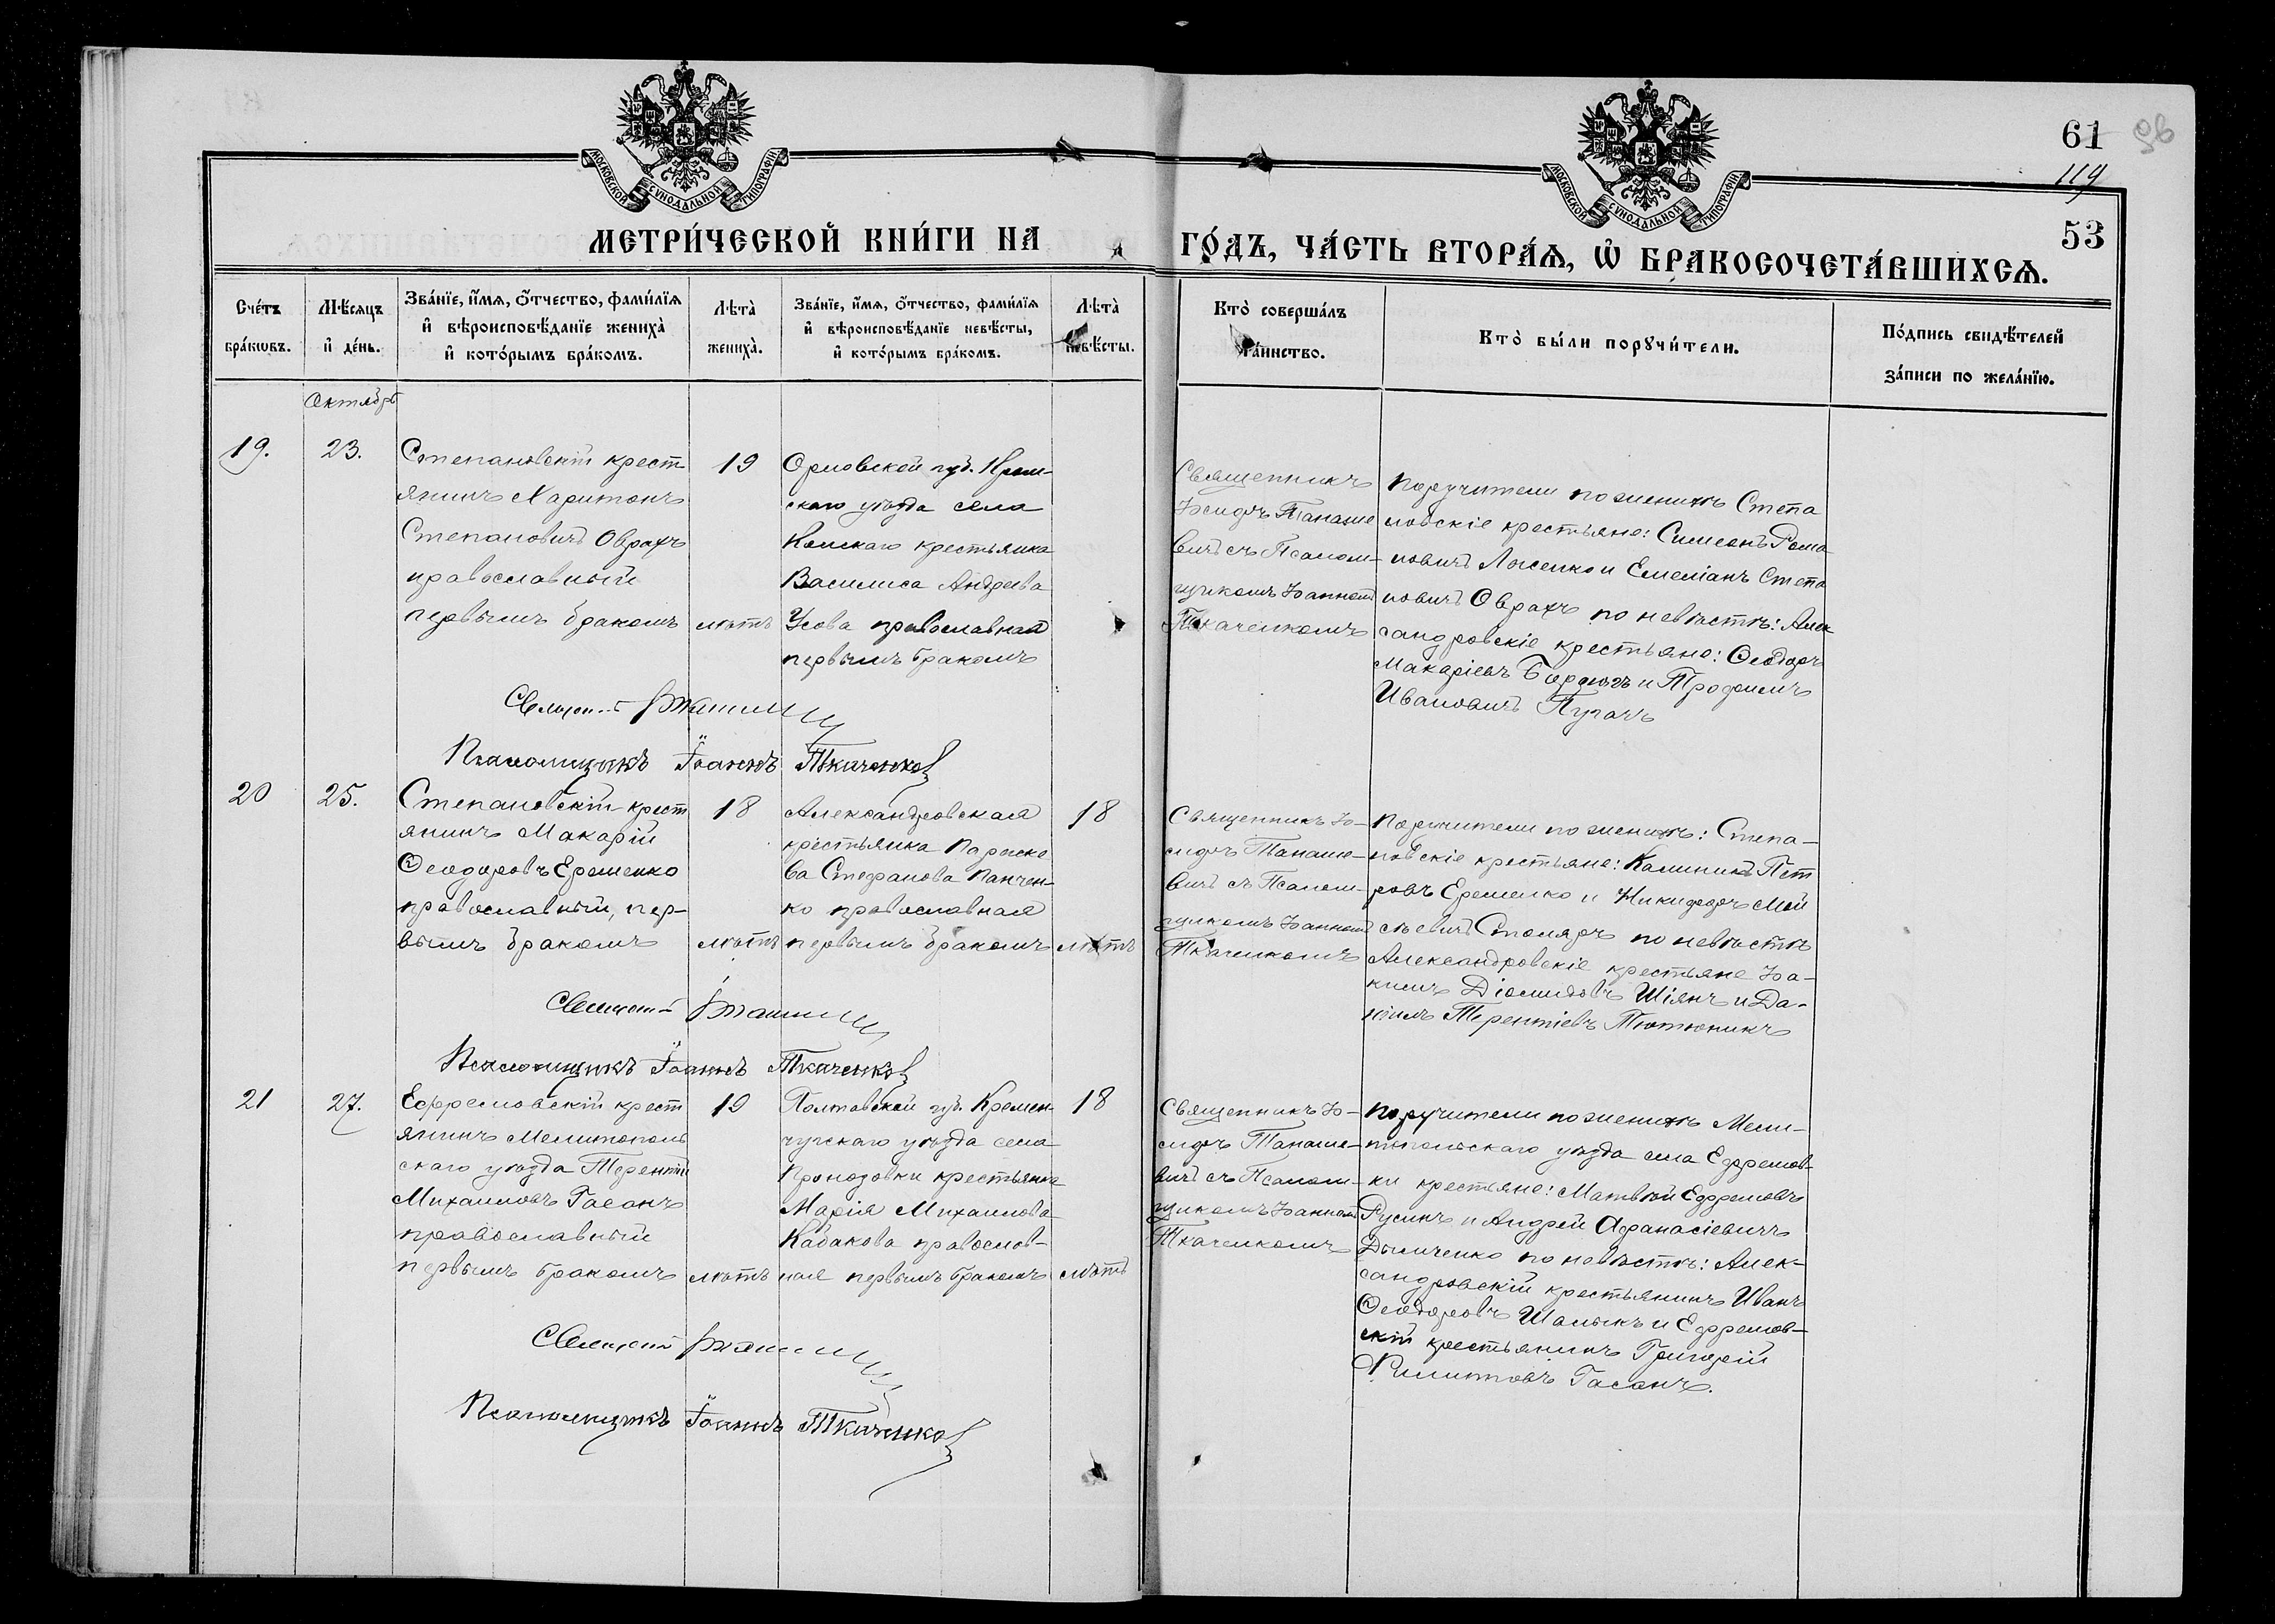 МОСКОВСКОЙ СУНОДАЛЬНОЙ ТИПОГРАФІИ
МОСКОВСКОЙ СУНОДАЛЬНОЙ ТИПОГРАФІИ
61
96
119
53
МЕТРИ́ЧЕСКОЙ КНИ́ГИ НА
ГО́ДЪ, ЧА́СТЬ ВТОРА́Ѧ, Ѽ БРАКОСОЧЕТА́ВШИХСѦ.
Сче́тъ
бра́кѡвъ.
Мѣ́сяцъ
и҆ де́нь.
Зва́нїе, и҆́мя, ѻ҆́тчество, фами́лїя
и҆ вѣроисповѣ́данїе жениха̀
и҆ кото́рымъ бра́комъ.
Лѣта̀
жениха̀.
Зва́нїе, и҆́мя, ѻ҆́тчество, фами́лїя
и҆ вѣроисповѣ́данїе невѣ́сты,
и҆ кото́рымъ бра́комъ.
Лѣта̀
невѣ́сты.
Кто̀ соверша́лъ
та́инство.
Кто̀ бы́ли порꙋчи́тели.
По́дпись свидѣ́телей
за́писи по жела́нїю.
Октябрь
19.
23.
Степановскій крест
янинъ Харитонъ
Степановичъ Оврахъ
православный
первымъ бракомъ
19
лѣтъ
Орловской губ. Кром-
скаго уѣзда села
крестьянка
Василиса Андреева
Усова православная
первымъ бракомъ
Священникъ
Исидоръ Танаше
вичъ съ Псалом-
щикомъ Іоанномъ
Ткаченкомъ
Поручители по женихѣ Степа
новскіе крестьяне: Симеонъ Рома
новичъ и Емеліанъ Степа
новичъ Оврахъ по невѣстѣ: Алек
сандровскіе крестьяне: Ѳеодоръ
Макаріевъ и Трофимъ
Ивановичъ Пугачъ
Псаломщикъ Іоаннъ Ткаченко
20
25.
Степановскій крест
янинъ Макарій
Ѳеодоровъ Еременко
православный, пер-
вымъ бракомъ
18
лѣтъ
Александровская
крестьянка Параске
ва Стефанова Панчен-
ко православная
первымъ бракомъ
18
лѣтъ
Священникъ И-
сидоръ Танаше-
вичъ съ Псалом-
щикомъ Іоанномъ
Ткаченкомъ
Поручители по женихѣ: Степа-
новскіе крестьяне: Калиникъ Пет
ровъ Еременко и Никифоръ Мой
сѣевичъ Столяръ по невѣстѣ
Александровскіе крестьяне Іоа-
кимъ Діомидовъ Шіянъ и Да-
ніилъ Терентіевъ Тютюникъ
Псаломщикъ Іоаннъ Ткаченко
21
27.
Ефремовскій крест
янинъ Мелитополь
скаго уѣзда Терентій
Михаиловъ Гасанъ
православный
первымъ бракомъ
19
лѣтъ
Полтавской губ. Кремен-
чугскаго уѣзда села
крестьянка
Марія Михаилова
Кабакова православ-
ная первымъ бракомъ
18
лѣтъ
Священникъ И-
сидоръ Танаше-
вичъ съ Псалом-
щикомъ Іоанномъ
Ткаченкомъ
Поручители по женихѣ Мели-
топольскаго уѣзда села Ефремов-
ки крестьяне: Матвѣй Ефремовъ
Русинъ и Андрей Афанасіевичъ
по невѣстѣ: Алек-
сандровскій крестьянинъ Иванъ
Ѳеодоровъ и Ефремов-
скій крестьянинъ Григорій
Гасанъ.
Псаломщикъ Іоаннъ Ткаченко